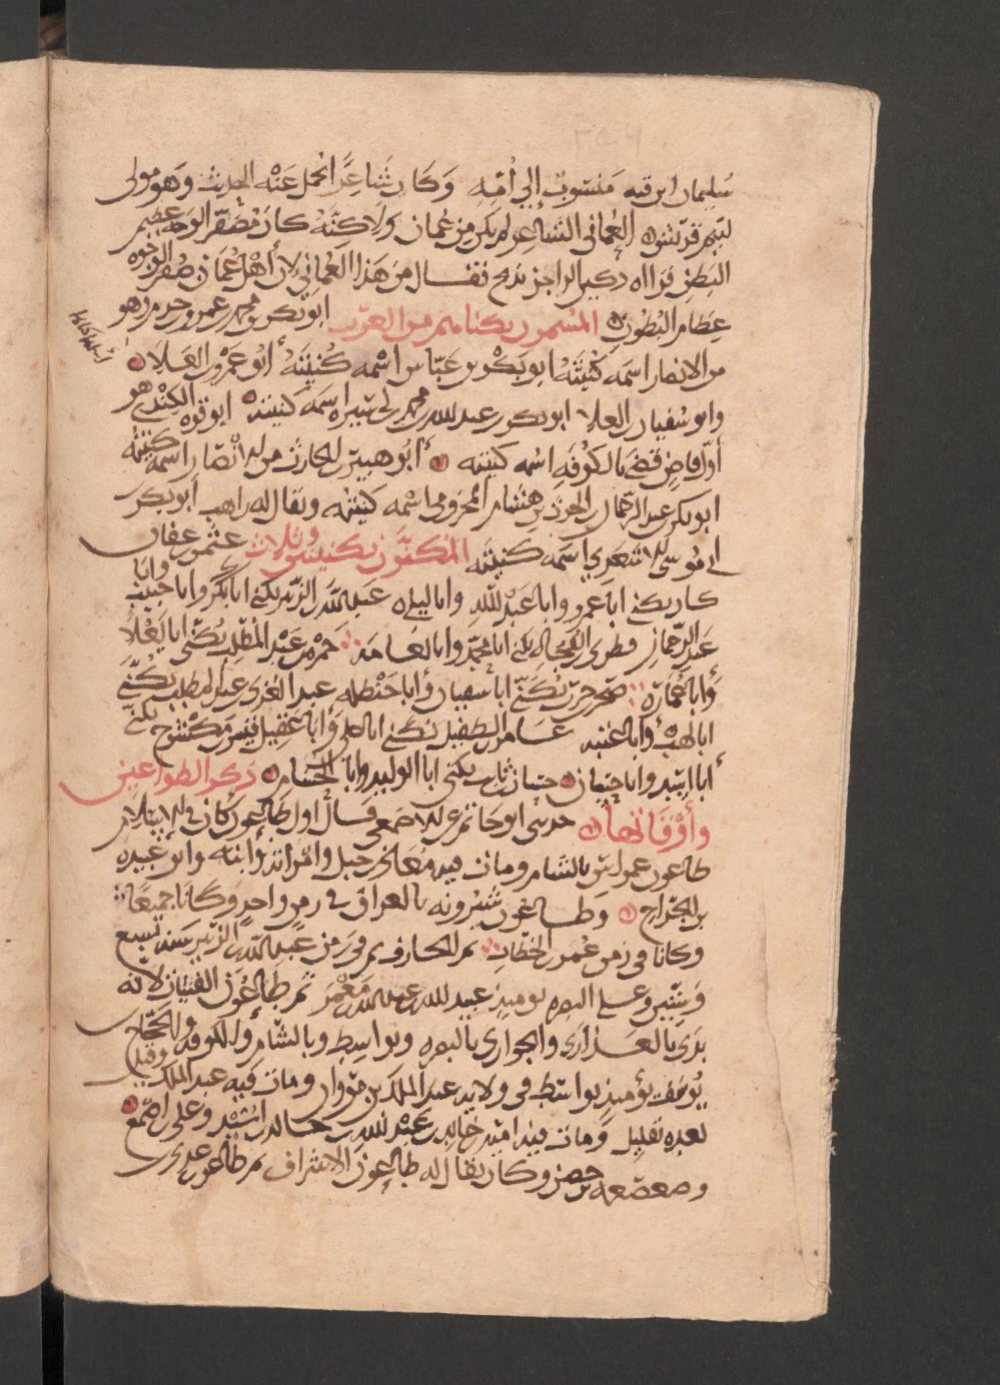 سليمان ابن قته منسوب إلى أمه وكان شاعرًا يحمل عنه الحديث وهو مولى
لتيم قريش العماني الشاعر لم يكن من عمان ولاكنه كان مصفر الوجه عظيم
البطن فراه دكين الراجز يمدح فقال من هذا العماني لأن أهل عمان صفر الوجوه
عظام البطون المسمون بكناهم من العرب ابو بكر بن محمد بن عمرو بن حزم وهو
من الانصار اسمه كنيته ابو بكر بن عياش اسمه كنيته أبو عمرو بن العلا
وابو سفيان بن العلا ابو بكر بن عبد الله بن محمد بن ابي سبره اسمه كنيته ابو قره الكندي هو
أول قاض قضى بالكوفه اسمه كنيته أبو هبيره بن الحارث من الأنصار اسمه كنيته
ابو بكر بن عبد الرحمان بن الحرث بن هشام المخزومي اسمه كنيته ويقال له راهب ابو بكر بن
ابي موسى الاشعري اسمه كنيته المكنون بكنيتين وثلاث عثمن بن عفان
كان يكنى ابا عمرو وابا عبد الله وابا ليلى عبد الله بن الزبير يكنى ابا بكر وابا خبيب وابا
عبد الرحمان قطري بن الفجاه يكنى ابا محمد وابا نعامه حمزه بن عبد المطلب يكنى ابا يعلا
وأبا عمارة صخر بن حرب يكنى أبا سفيان وأبا حنظله عبد العزى بن عبد المطلب يكنى
ابا لهب وابا عتبه عامر بن الطفيل يكنى ابا علي وابا عقيل قيس بن مكشوح يكنى
أبا اسيد وابا حسان حسان بن ثابت يكنى ابا الوليد وابا الحسام ذكر الطواعين
وأوقاتها حدثني ابو حاتم عن الاصمعي قال اول طاعون كان في الاسلام
طاعون عمواس بالشام ومات فيه معاذ بن جبل وامراته وابنه وابو عبيده
بن الجراح وطاعون شيرويه بالعراق في زمن واحد وكانا جميعًا
وكانا في زمن عمر بن الخطاب ثم الجارف في زمن عبد الله بن الزبير سنه تسع
وستين وعلى البصره يوميذ عبيد الله بن عبد الله بن معمر ثم طاعون الفتيات لانه
بدى بالعذارى والجواري بالبصره وبواسط وبالشام والكوفه والحجاج بن
يوسف يوميذ بواسط في ولايه عبد الملك بن مروان ومات فيه عبد الملك بن مروان وقيل
بعده بقليل ومات فيه اميه بن خالد بن عبد الله بن خالد بن اسيد وعلي بن اصمع
وصعصعه بن حصن وكان يقال له طاعون الاشراف ثم طاعون عدي بن